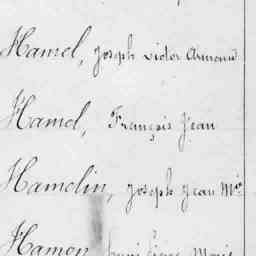 Hamel, Joseph Victor Armand
Hamel, François Jean
Hamelin, Joseph Jean Mie
Hamon Marie